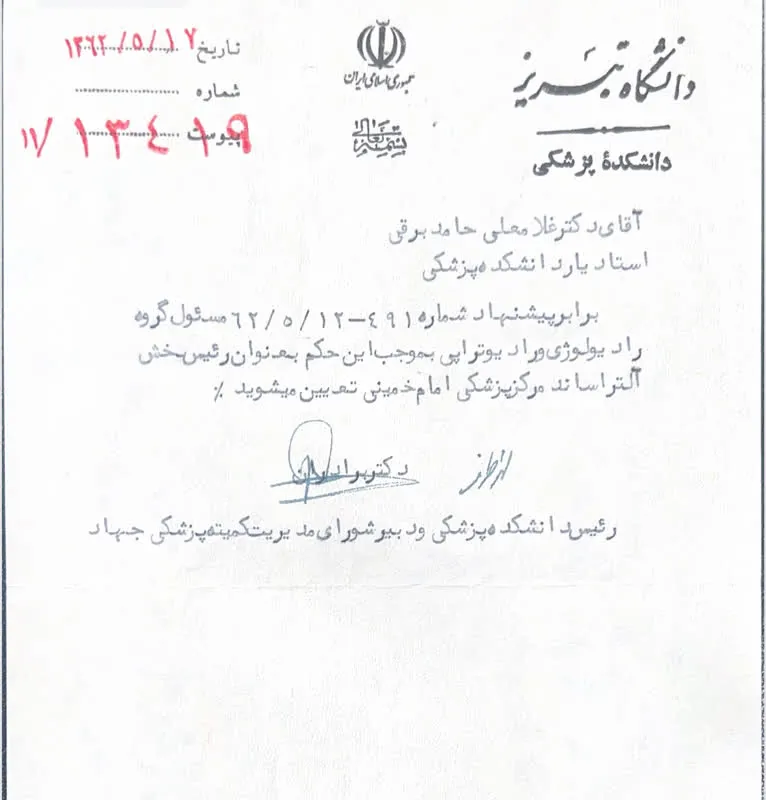 دانشگاه تبریز
دانشکدهٔ پزشکی
جمهوری اسلامی ایران
بسمه تعالی
تاریخ ۱۳۶۲/۵/۱۷
شماره
پیوست
۱۱/ ۱۳۴۱۹
آقای دکتر غلامعلی حامد برقی
استادیار دانشکده پزشکی
برابر پیشنهاد شماره ۴۹۱-۶۲/۵/۱۲ مسئول گروه
رادیولوژی و رادیوتراپی بموجب این حکم بعنوان رئیس بخش
آلتراساند مرکز پزشکی امام خمینی تعیین میشوید ٪
دکتر برادران
رئیس دانشکده پزشکی و دبیر شورای مدیریت کمیته پزشکی جهاد